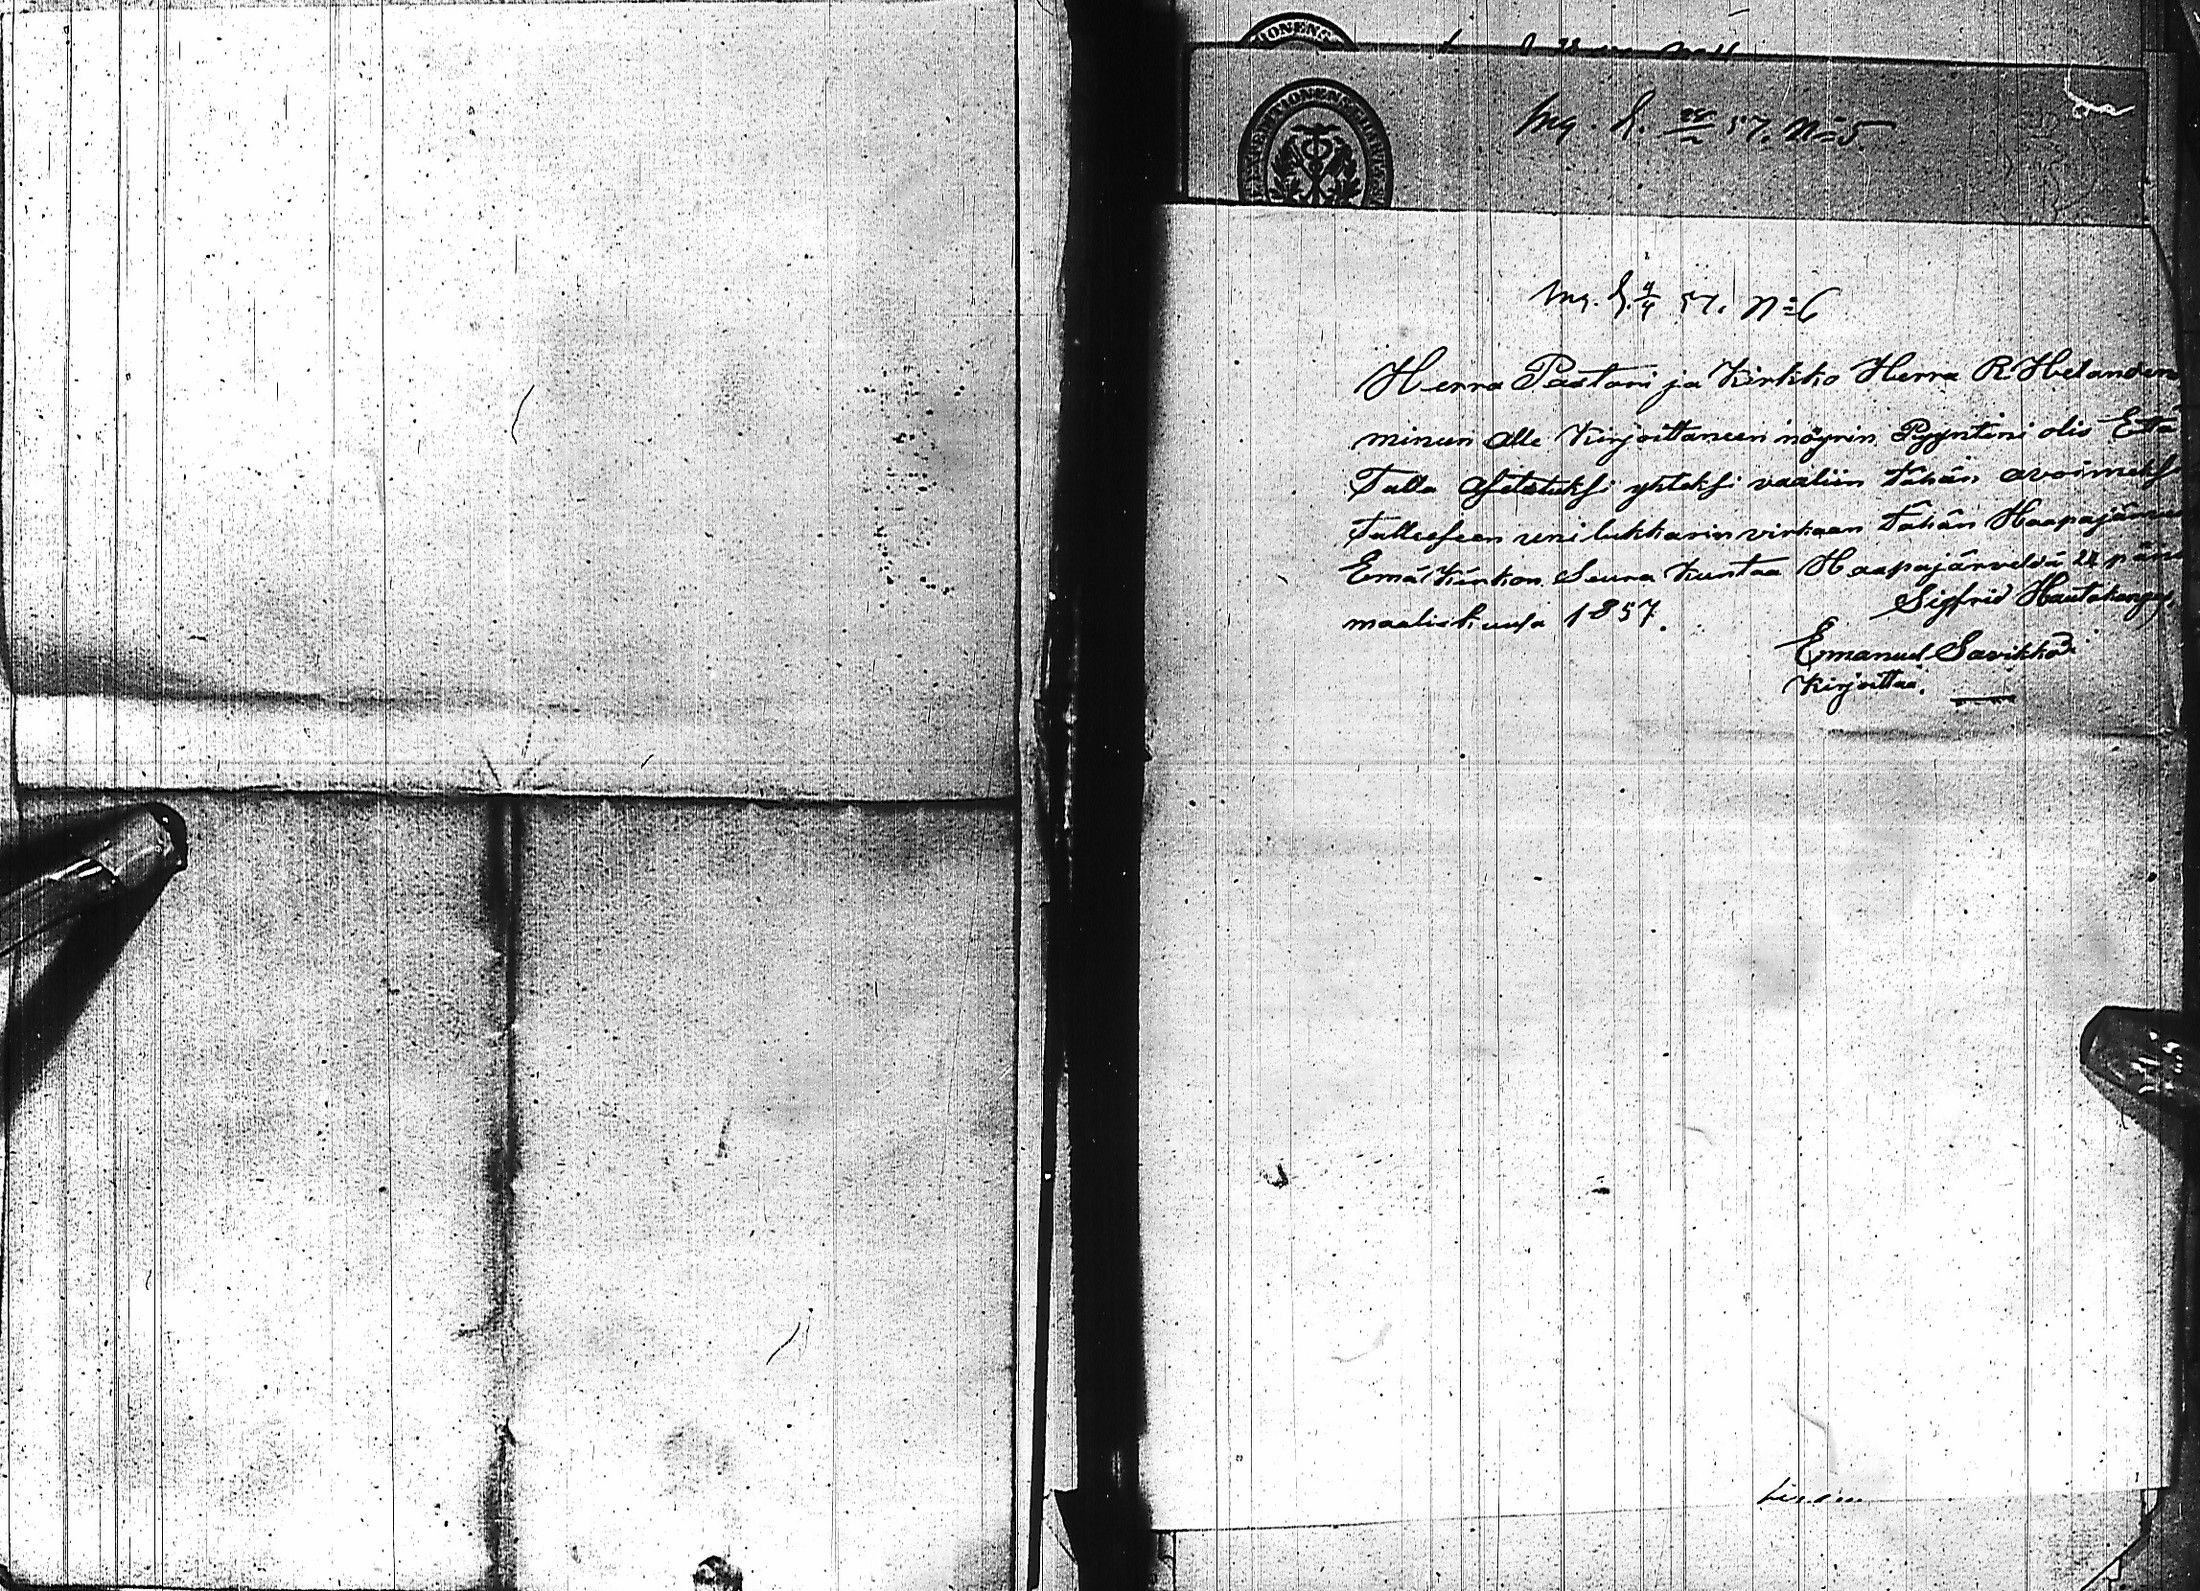 Ing. d. 57. N=5
Ing. d. 4/4 57. N=6
Herra Pastori ja Kirkko Herra R Helanden
minun alle Kirjoittaneen nöyrin Pyyntöni olis Että
Tulla Asetetuksi yhteksi vaaliin Tähän avoimeksi
Tulleeseen uni lukkarin virkaan Tähän Haapajärven
Emä Kirkon Seura Kuntaa Haapajärveldä 22 päivä
maaliskuusa 1857.
Sigfrid Hautakangas,
Emanuel Savikko
Kirjoittaa.